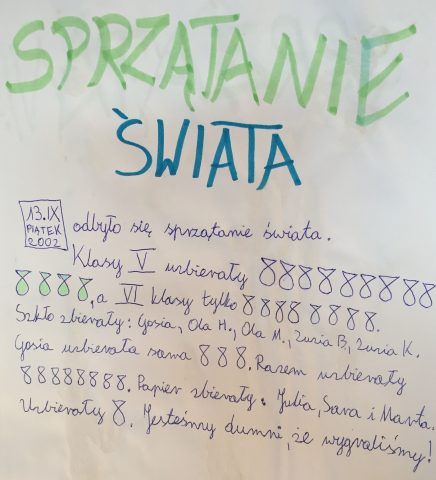 SPRZĄTANIE
ŚWIATA
13.IX
PIĄTEK
2002
odbyło się sprzątanie świata.
Klasy V uzbierały
, a VI klasy tylko .
Szkło zbierały: Gosia, Ola H., Ola M., Zuzia B, Zuzia K.
Gosia uzbierała sama . Razem uzbierały
. Papier zbierały: Julia, Sara i Marta.
Uzbierały . Jesteśmy dumni, że wygraliśmy!